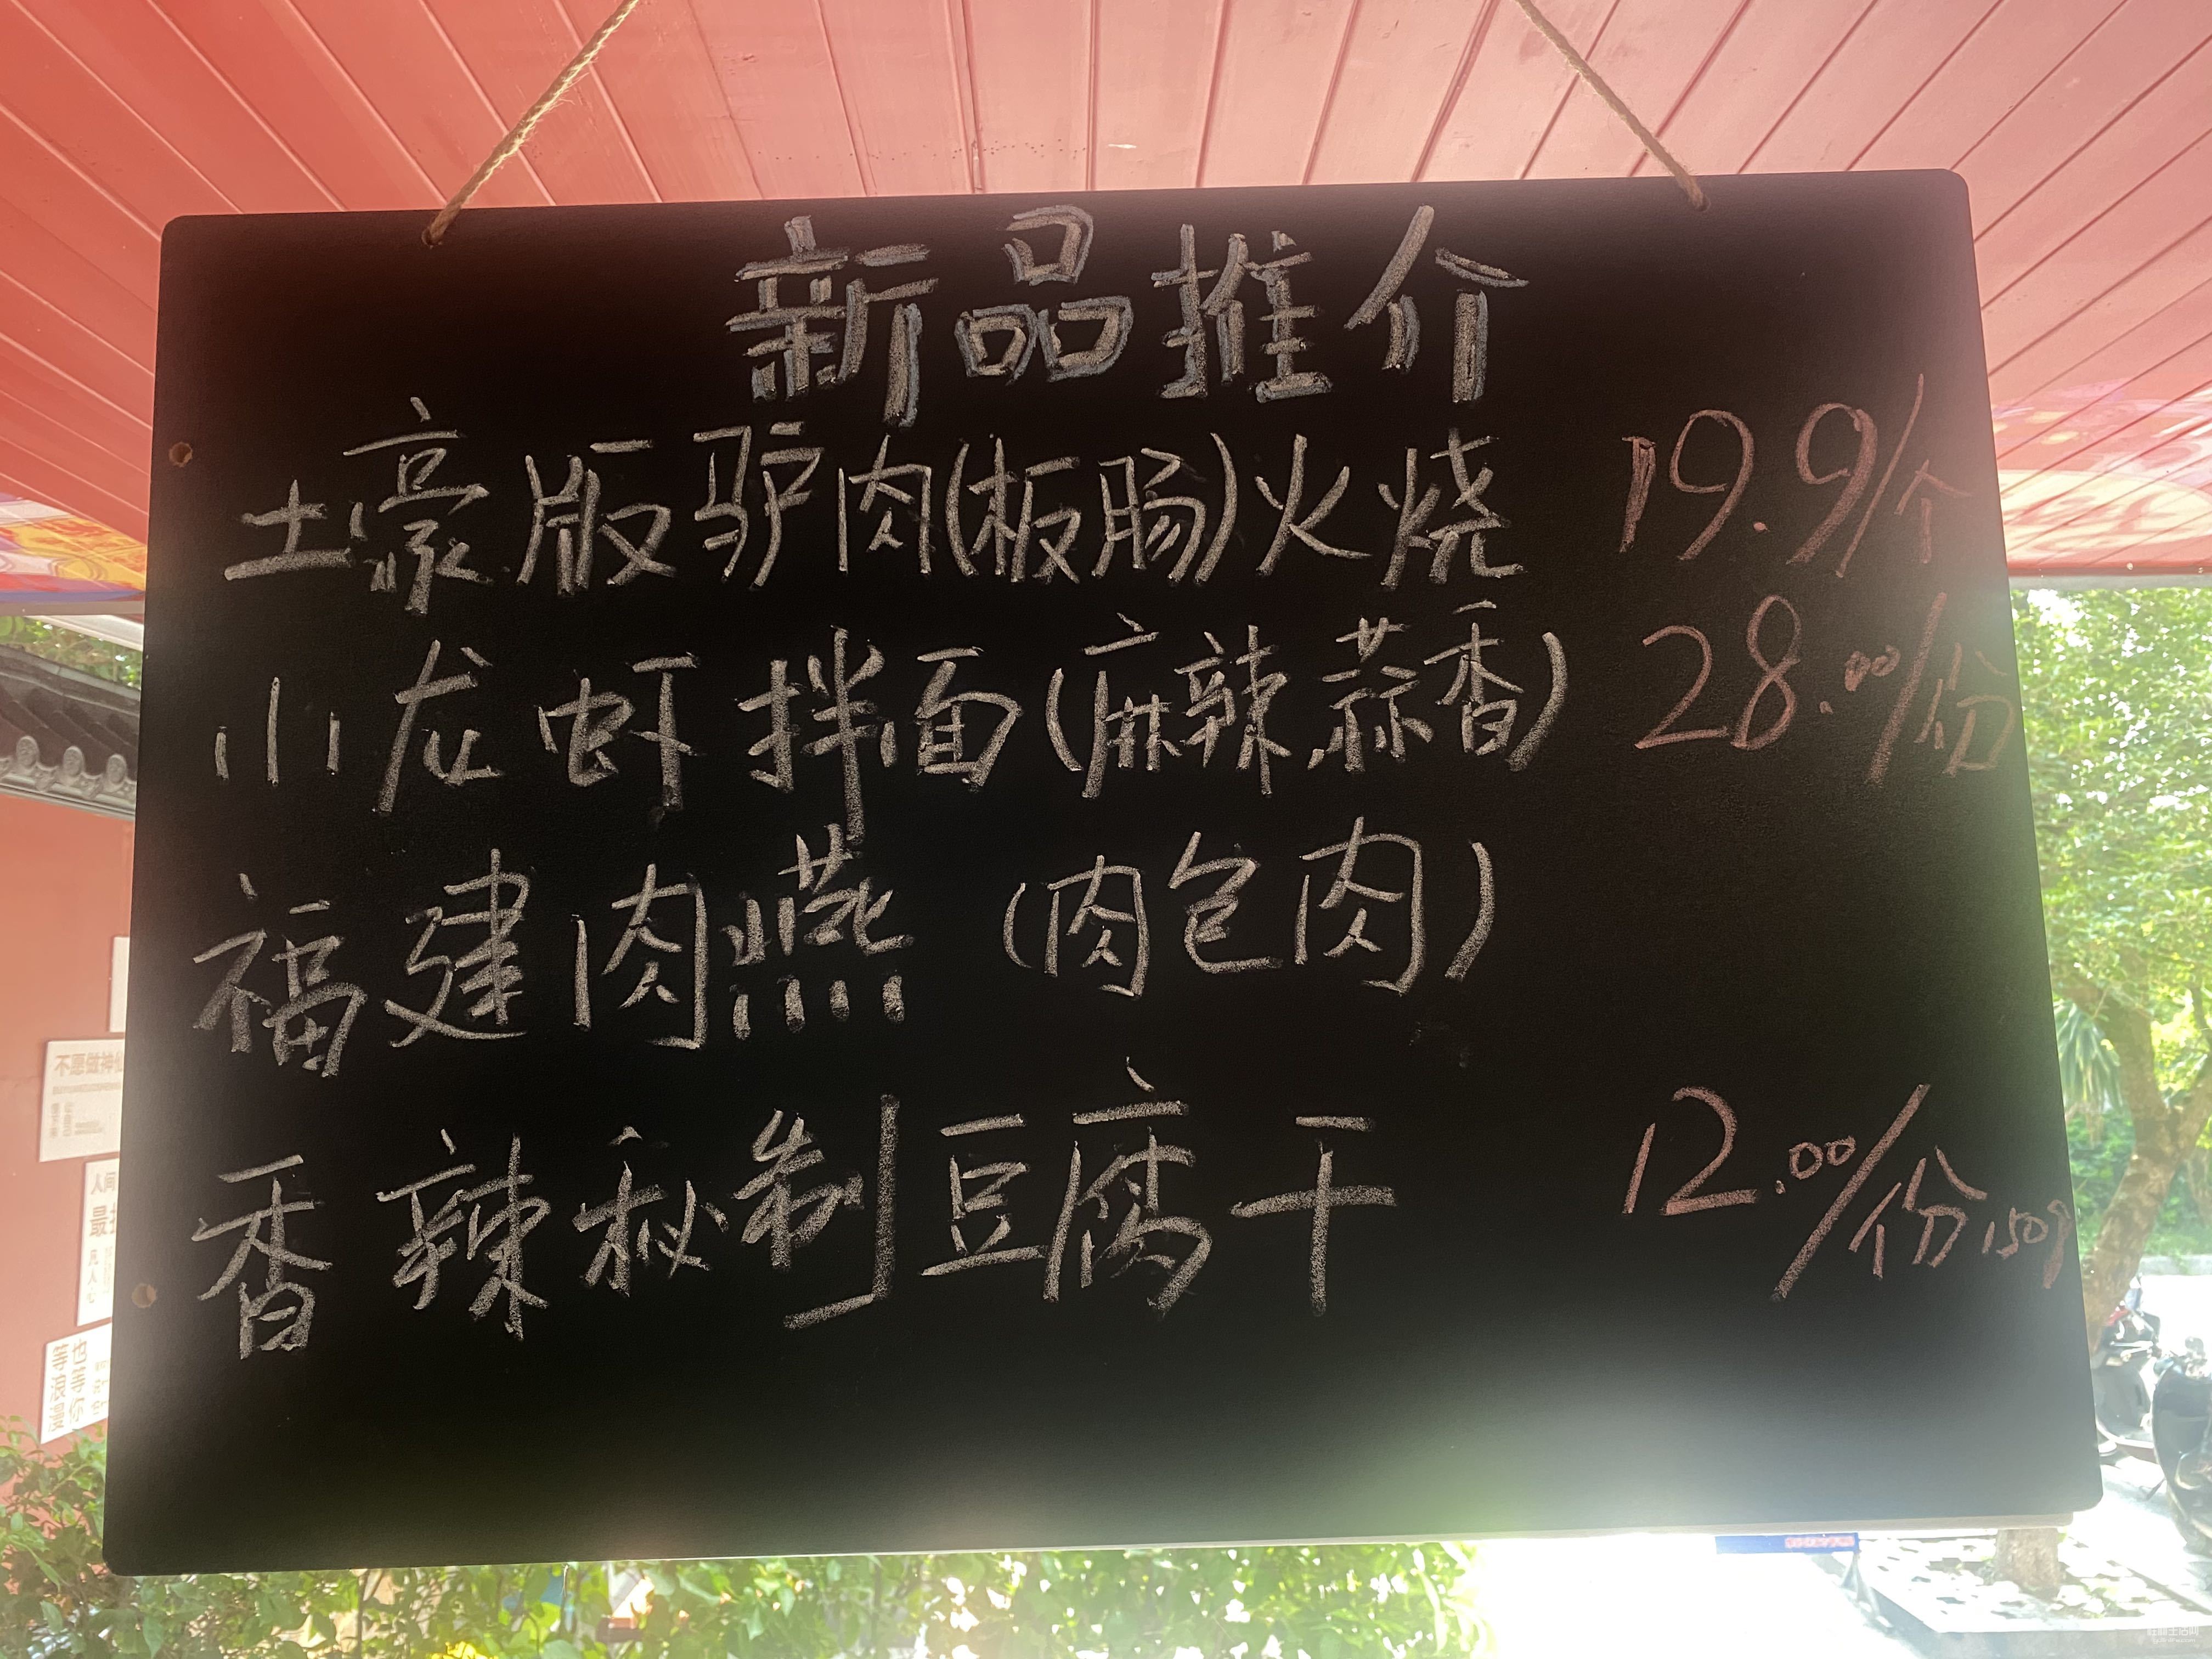 新品推介
土豪版驴肉(板肠)火烧 19.9/个
小龙虾拌面(麻辣,蒜香) 28.00/份
福建肉燕 (肉包肉)
香辣秘制豆腐干 12.00/份150g
不愿做神仙
人间
最
等
也等你